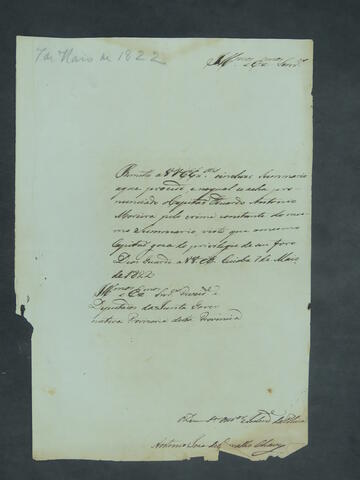 7 de Maio de 1822
Ill.mos e Ex.mos Snr.es
Remito a V V Ex.as o incluso Summario
a que procedi e no qual se acha pro-
nunciado o Capitão Antonio
Moreira pelo crime constante do mes-
mo Summario, visto que o mesmo
Capitão goza do privilegio de seu foro
Deos Guarde a V V Ex. Cuiabá 7 de Maio
de 1822
Ill.mos e Ex.mos Snr.es e
Deputados da Junta Gover-
nativa Provisoria desta Provincia
Antonio Jose de Carvalho Chaves